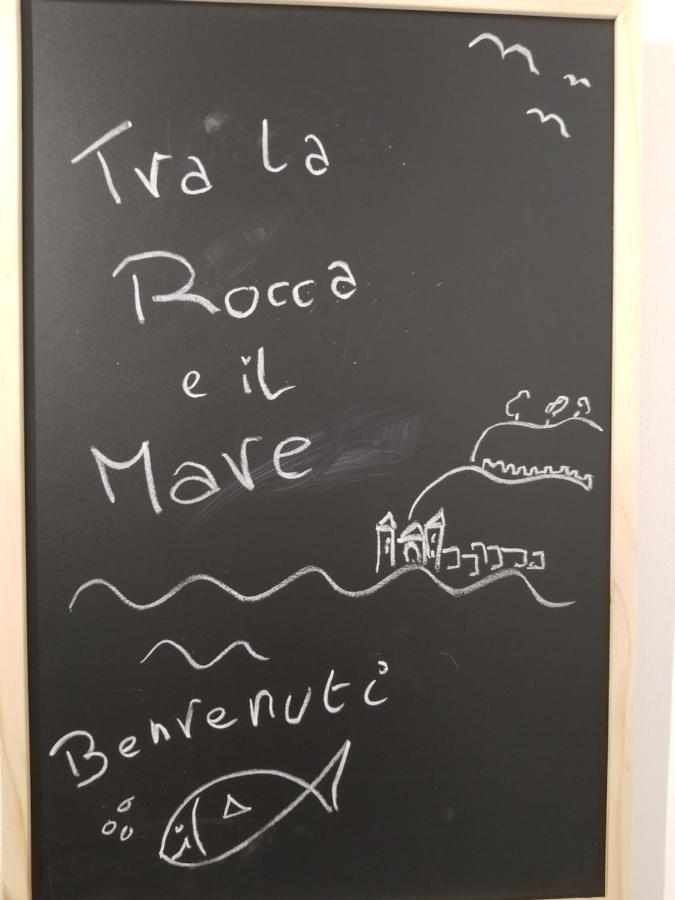 Tra la
Rocca
e il
Mare
Benvenuti